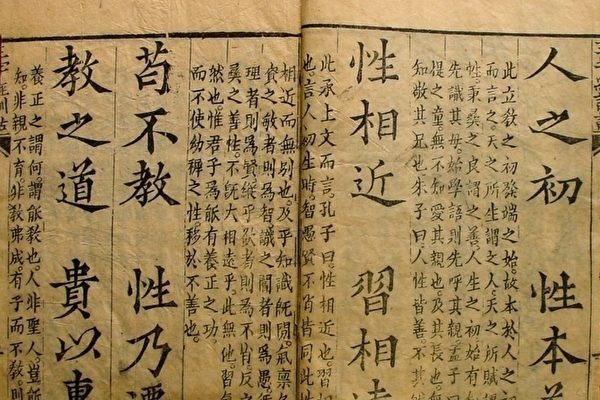 人之初 性本善
此立教之初發端之始。故本於人之初
而言之。天之所生謂之人。天之所賦謂
性。秉彝之良謂之善。人生之初。始有
先識其母。始學語則先呼其親。孟子曰
提之童。無不知愛其親也。及其長也。無
知敬其兄也。朱子曰。人性皆善。不其然
性相近 習相遠
此承上文而言。孔子曰。性相近也。習
也。言人初生時。智愚賢不肖。皆同此性
相近而無別也。及乎知識既開。氣稟各
資之敏者則為智。識之闇者則為愚。
理者則為賢。縱乎欲者則為不肖。反之
彝之善性。不既大相遠乎。此無他。習氣
然也。惟君子為能有養正之功。
而不使幼穉之性。移於不善也。
苟不教 性乃遷
教之道 貴以專
養正之謂何。謂能教也。人非聖人。豈能
知。非親不育。非教弗成。有子而不教。則